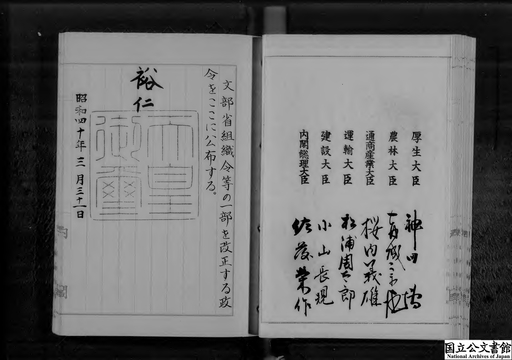 厚生大臣 神田博
農林大臣 赤城宗徳
通商産業大臣 桜内義雄
運輸大臣 松浦周太郎
建設大臣 小山長規
内閣総理大臣 佐藤榮作
文部省組織令等の一部を改正する政
令をここに公布する。
裕仁
天皇
御璽
昭和四十年三月三十一日
国立公文書館
National Archives of Japan